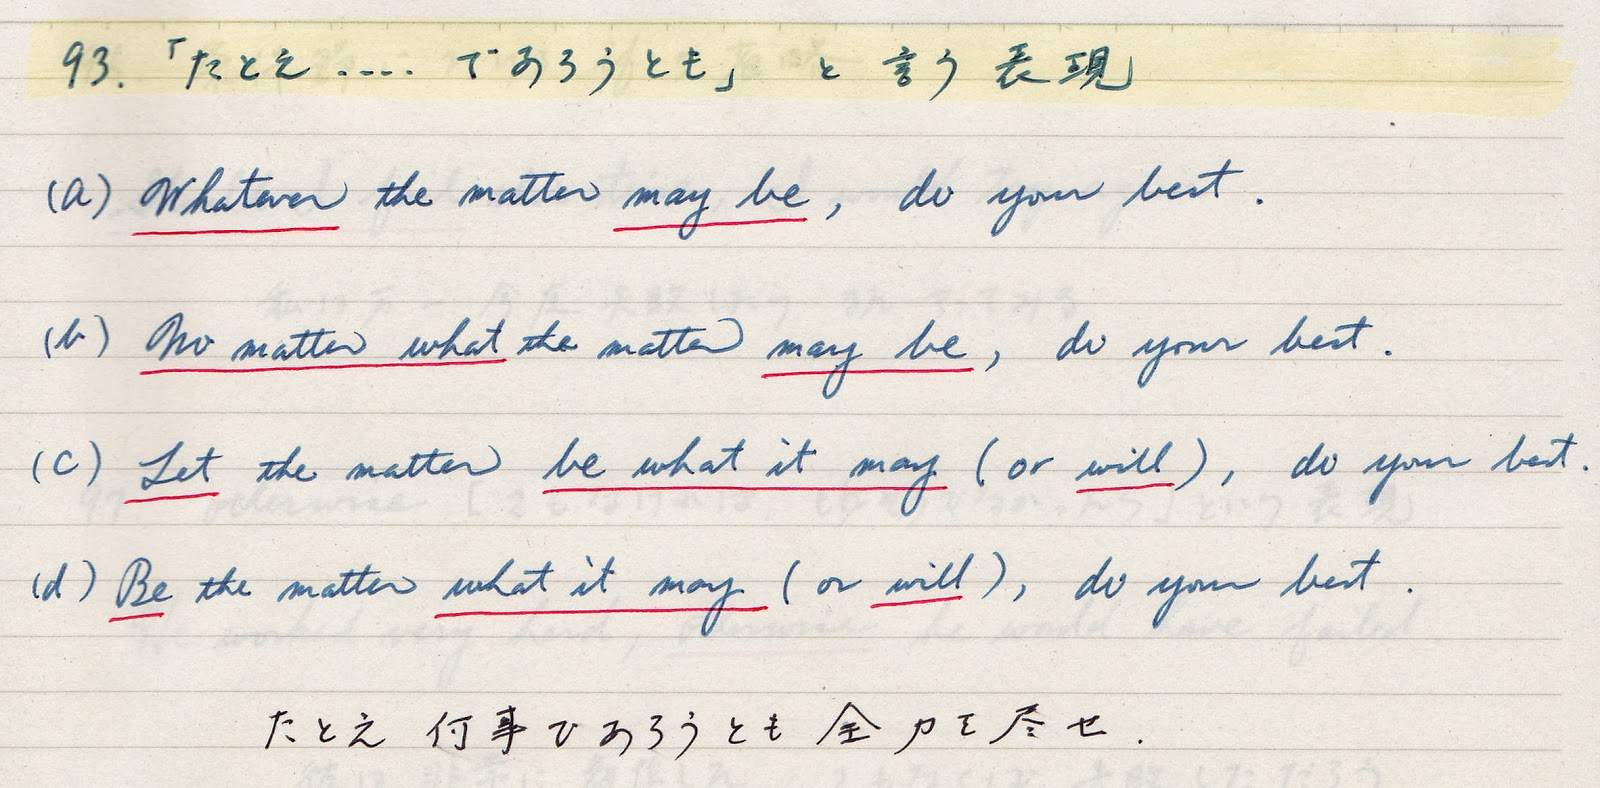 93. 「たとえ.... であろうとも」 と 言う 表現」
(a) Whatever the matter may be, do your best.
(b) No matter what the matter may be, do your best.
(c) Let the matter be what it may (or will), do your best.
(d) Be the matter what it may (or will), do your best.
たとえ 何事であろうとも 全力を尽せ.